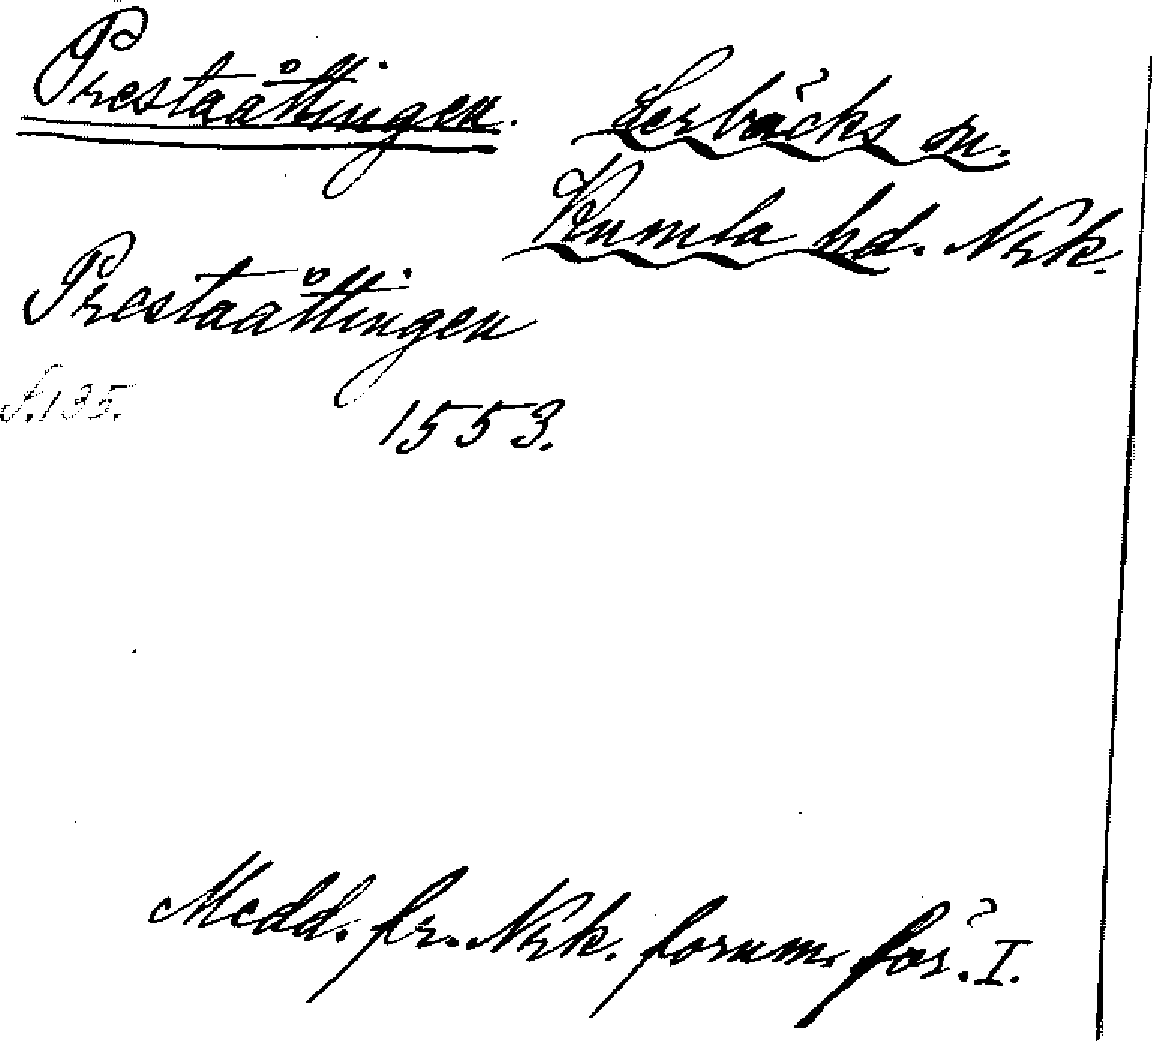 Prestaåttingen. Lerbäcks sn.
Kumla hd. Nrk.
Prestaåttingen
S. 135.
1553.
Medd. fr. Nrk. fornm. för. I.